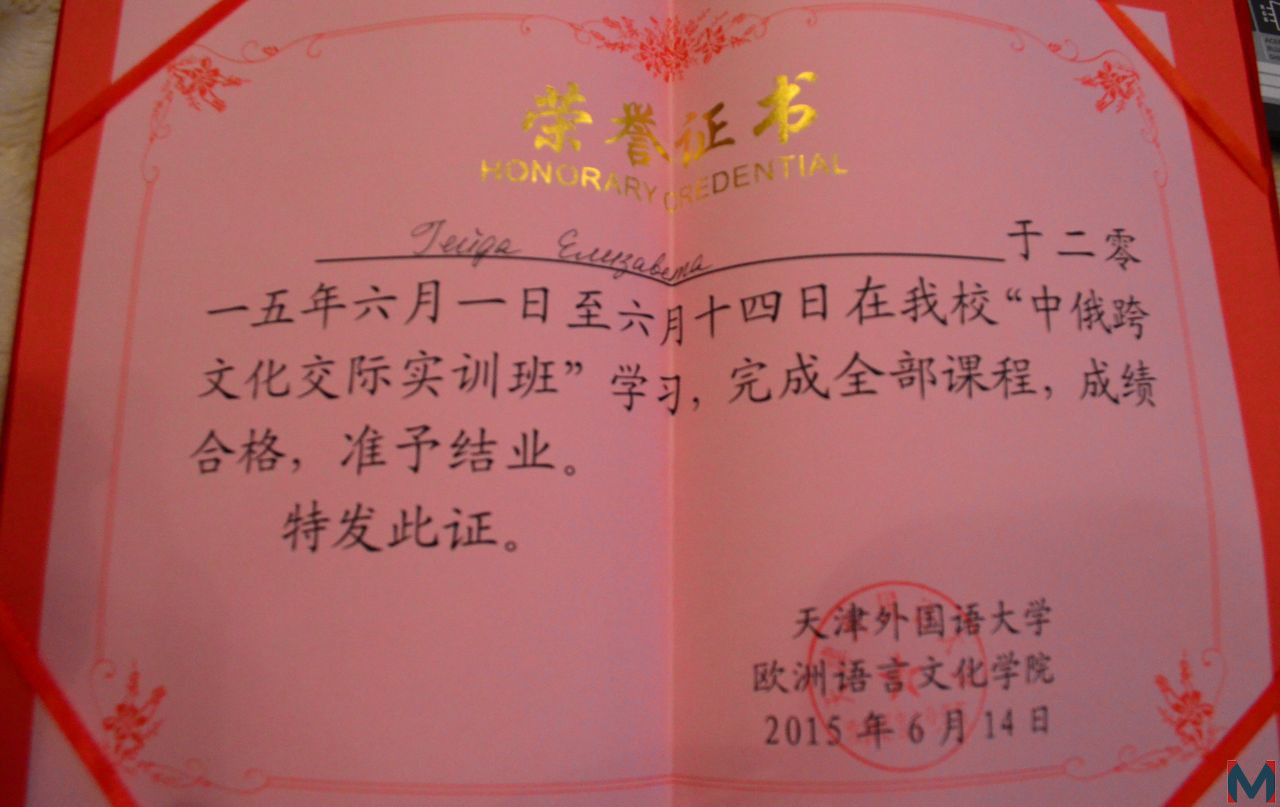 荣誉证书
HONORARY CREDENTIAL
Гейда Елизавета 于二零
一五年六月一日至六月十四日在我校“中俄跨
文化交际实训班”学习，完成全部课程，成绩
合格，准予结业。
特发此证。
天津外国语大学
欧洲语言文化学院
2015年6月14日
M